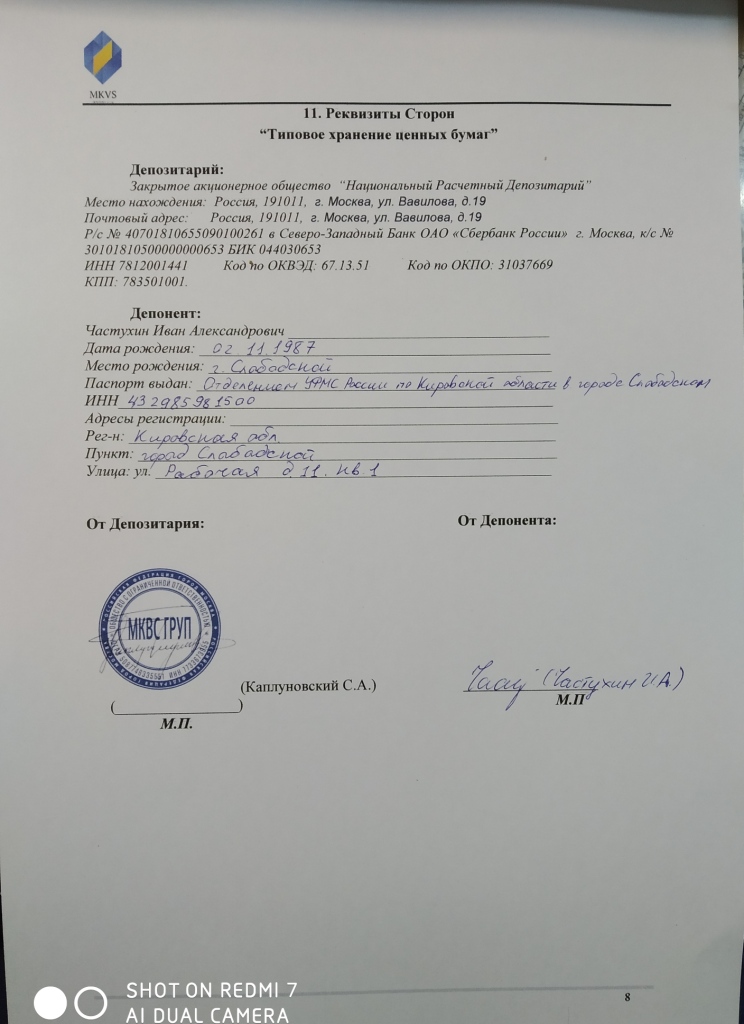 MKVS
11. Реквизиты Сторон
“Типовое хранение ценных бумаг”
Депозитарий:
Закрытое акционерное общество “Национальный Расчетный Депозитарий”
Место нахождения: Россия, 191011, г. Москва, ул. Вавилова, д.19
Почтовый адрес: Россия, 191011, г. Москва, ул. Вавилова, д.19
Р/с № 40701810655090100261 в Северо-Западный Банк ОАО «Сбербанк России» г. Москва, к/с №
30101810500000000653 БИК 044030653
ИНН 7812001441 Код по ОКВЭД: 67.13.51 Код по ОКПО: 31037669
КПП: 783501001.
Депонент:
Частухин Иван Александрович
Дата рождения: 02.11.1987
Место рождения: г. Слободской
Паспорт выдан: Отделением УФМС России по Кировской области в городе Слободском
ИНН 432985981500
Адресы регистрации:
Рег-н: Кировская обл.
Пункт: город Слободской
Улица: ул. Рабочая д 11. кв 1
От Депозитария: От Депонента:
МКВС ГРУП
(Каплуновский С.А.) (Частухин И.А.)
М.П. М.П
8
SHOT ON REDMI 7
AI DUAL CAMERA